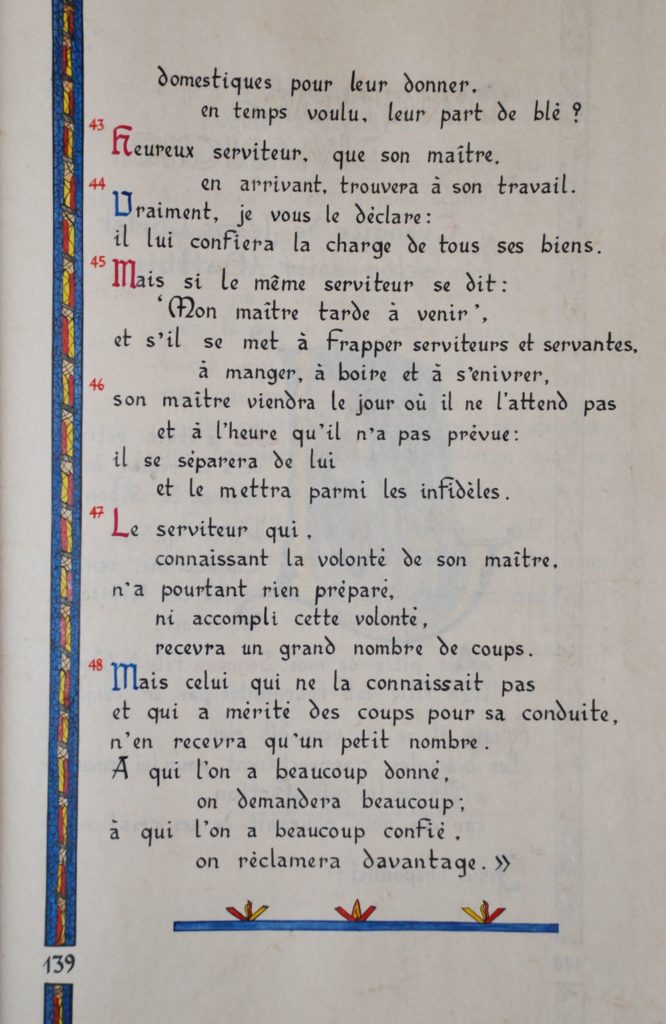 domestiques pour leur donner,
en temps voulu, leur part de blé ?
43
Heureux serviteur, que son maître,
44
en arrivant, trouvera à son travail.
Vraiment, je vous le déclare :
il lui confiera la charge de tous ses biens.
45
Mais si le même serviteur se dit :
‘Mon maître tarde à venir’,
et s'il se met à frapper serviteurs et servantes,
à manger, à boire et à s'enivrer,
46
son maître viendra le jour où il ne l'attend pas
et à l'heure qu'il n'a pas prévue :
il se séparera de lui
et le mettra parmi les infidèles.
47
Le serviteur qui,
connaissant la volonté de son maître,
n'a pourtant rien préparé,
ni accompli cette volonté,
recevra un grand nombre de coups.
48
Mais celui qui ne la connaissait pas
et qui a mérité des coups pour sa conduite,
n'en recevra qu'un petit nombre.
A qui l'on a beaucoup donné,
on demandera beaucoup ;
à qui l'on a beaucoup confié,
on réclamera davantage. »
139